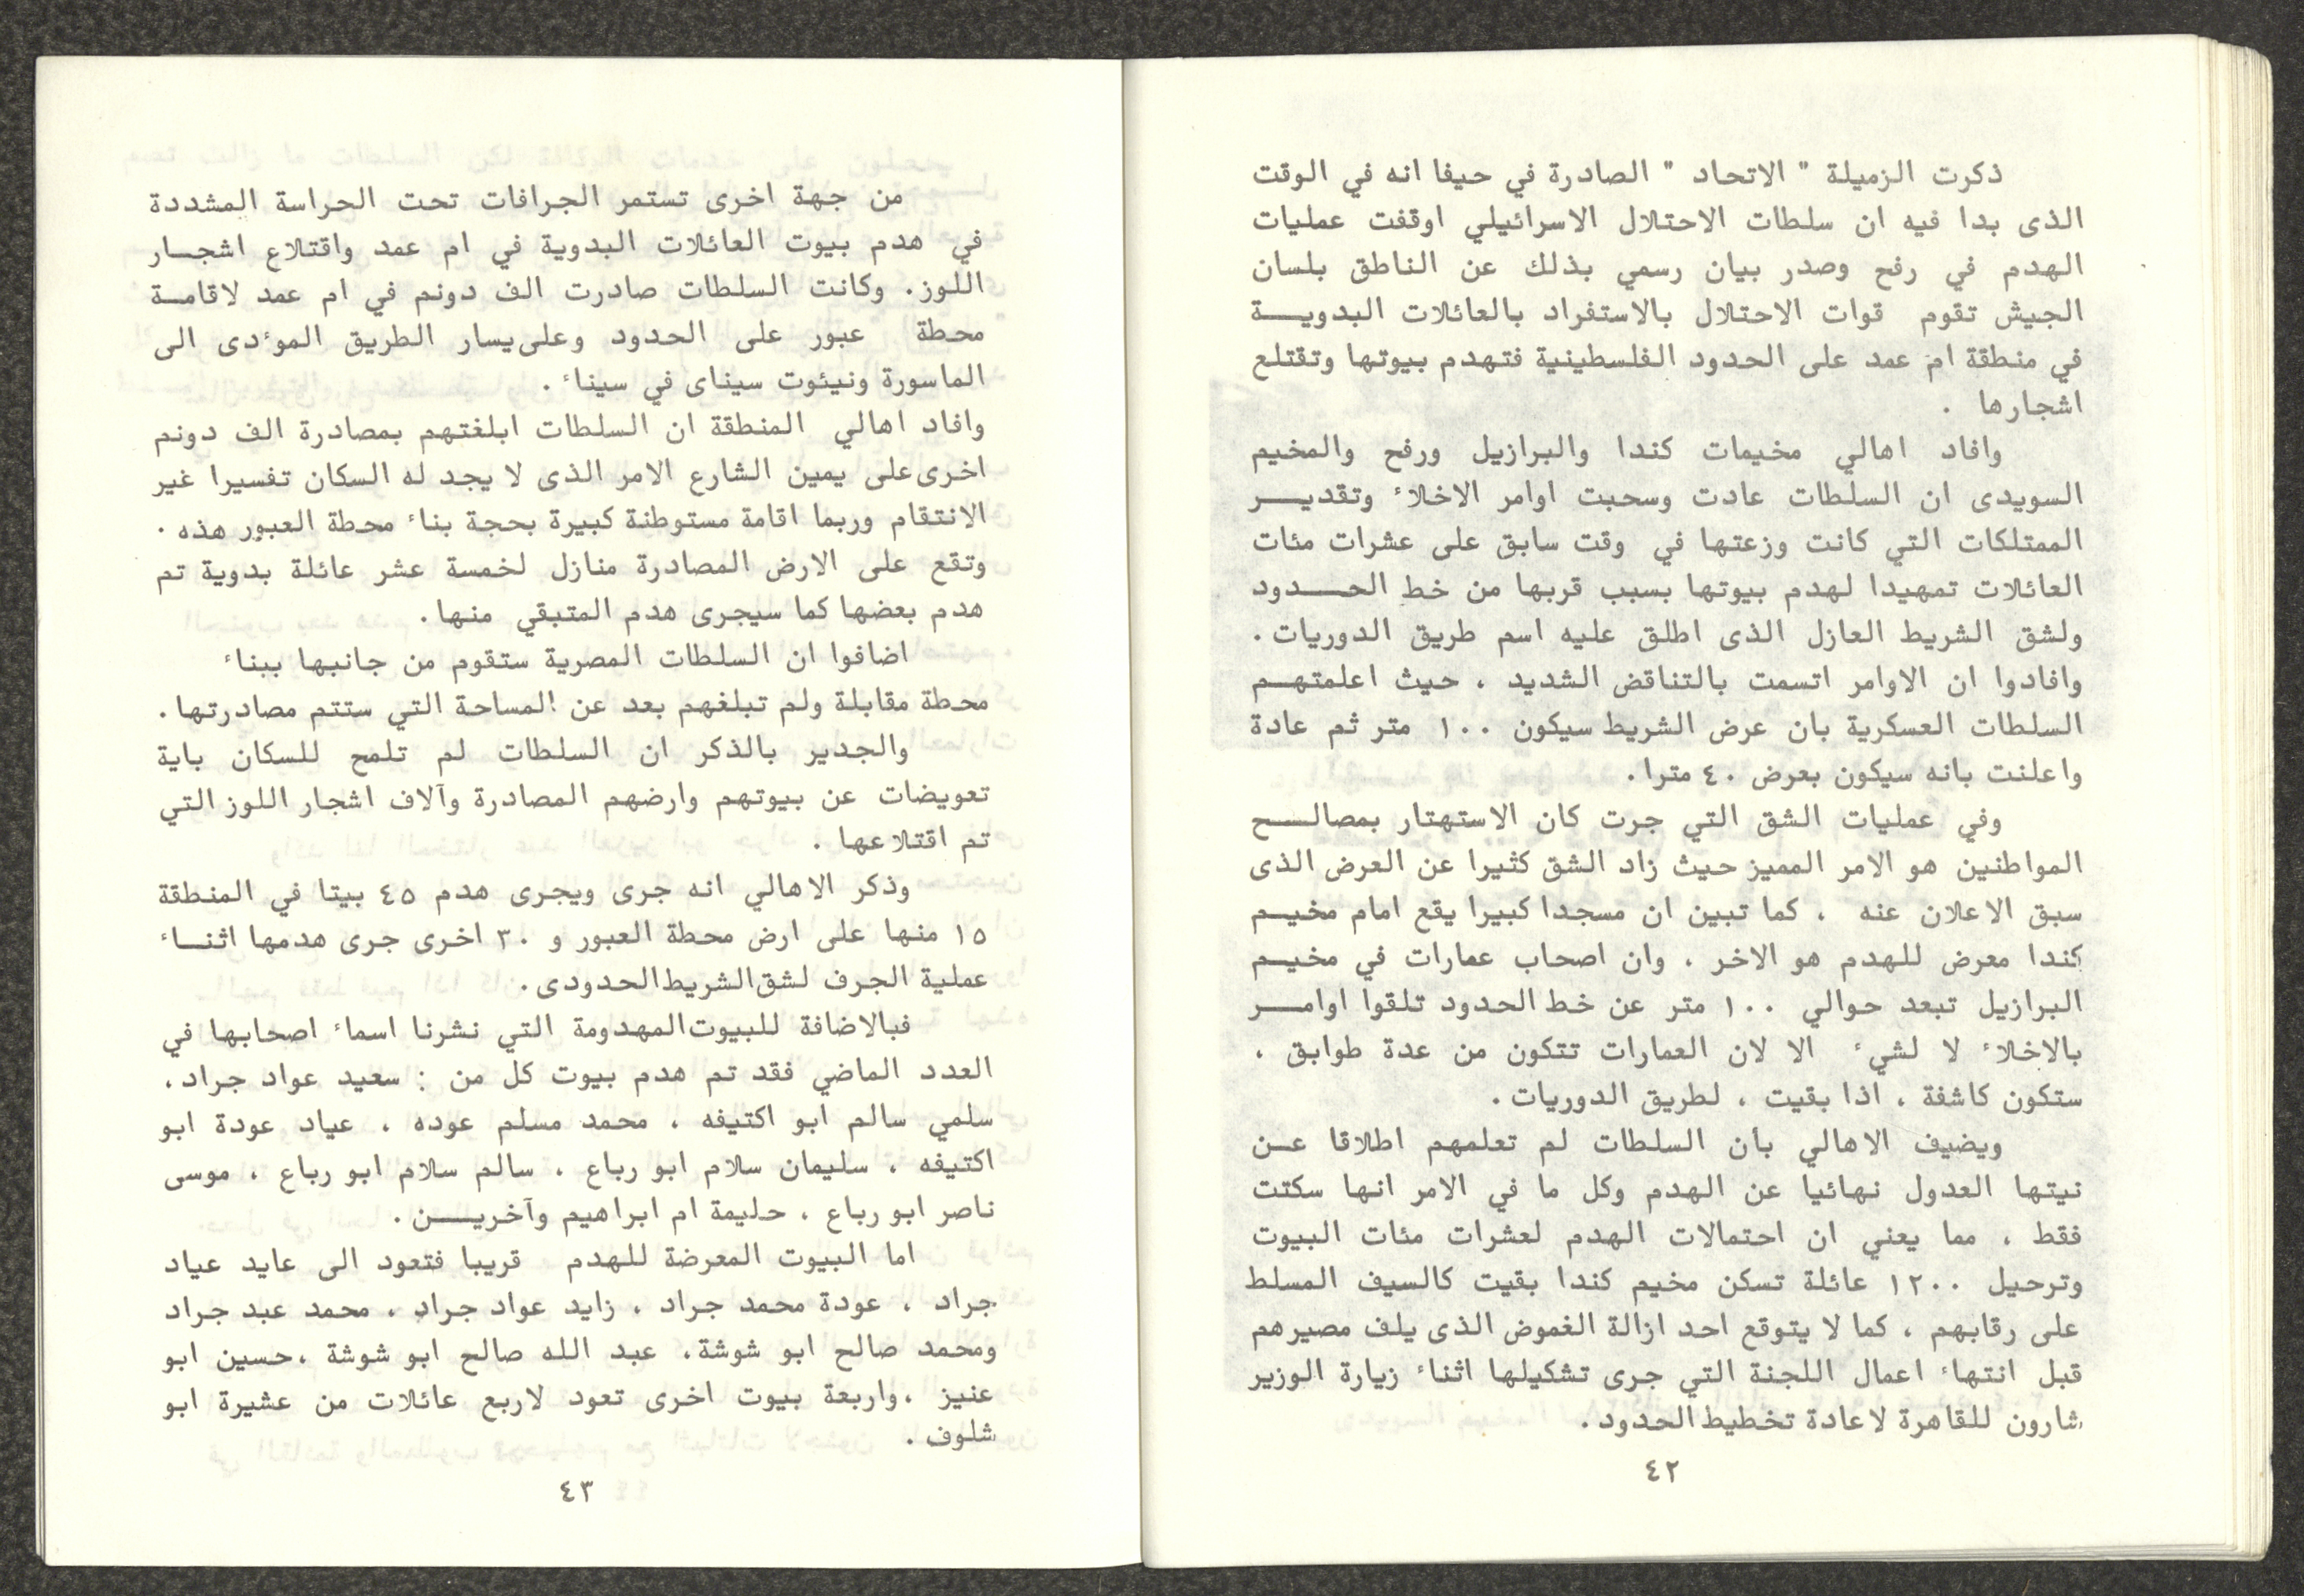 ذكرت الزميلة " الاتحاد " الصادرة في حيفا انه في الوقت
الذى بدا فيه ان سلطات الاحتلال الاسرائيلي اوقفت عمليات
الهدم في رفح وصدر بيان رسمي بذلك عن الناطق بلسان
الجيش تقوم قوات الاحتلال بالاستفراد بالعائلات البدويـــة
في منطقة ام عمد على الحدود الفلسطينية فتهدم بيوتها وتقتلع
اشجارها .
وافاد اهالي مخيمات كندا والبرازيل ورفح والمخيم
السويدى ان السلطات عادت وسحبت اوامر الاخلاء وتقديــر
الممتلكات التي كانت وزعتها في وقت سابق على عشرات مئات
العائلات تمهيدا لهدم بيوتها بسبب قربها من خط الحــدود
ولشق الشريط العازل الذى اطلق عليه اسم طريق الدوريات .
وافادوا ان الاوامر اتسمت بالتناقض الشديد ، حيث اعلمتهـم
السلطات العسكرية بان عرض الشريط سيكون ١٠٠ متر ثم عادة
واعلنت بانه سيكون بعرض ٤٠ مترا .
وفي عمليات الشق التي جرت كان الاستهتار بمصالــح
المواطنين هو الامر المميز حيث زاد الشق كثيرا عن العرض الذى
سبق الاعلان عنه ، كما تبين ان مسجدا كبيرا يقع امام مخيـم
كندا معرض للهدم هو الاخر ، وان اصحاب عمارات في مخيـم
البرازيل تبعد حوالي ١٠٠ متر عن خط الحدود تلقوا اوامــر
بالاخلاء لا لشيء الا لان العمارات تتكون من عدة طوابق ،
ستكون كاشفة ، اذا بقيت ، لطريق الدوريات .
ويضيف الاهالي بأن السلطات لم تعلمهم اطلاقا عـن
نيتها العدول نهائيا عن الهدم وكل ما في الامر انها سكتت
فقط ، مما يعني ان احتمالات الهدم لعشرات مئات البيوت
وترحيل ١٢٠٠ عائلة تسكن مخيم كندا بقيت كالسيف المسلط
على رقابهم ، كما لا يتوقع احد ازالة الغموض الذى يلف مصيرهم
قبل انتهاء اعمال اللجنة التي جرى تشكيلها اثناء زيارة الوزير
شارون للقاهرة لاعادة تخطيط الحدود .
٤٢
من جهة اخرى تستمر الجرافات تحت الحراسة المشددة
في هدم بيوت العائلات البدوية في ام عمد واقتلاع اشجـار
اللوز . وكانت السلطات صادرت الف دونم في ام عمد لاقامـة
محطة عبور على الحدود وعلى يسار الطريق الموءدى الى
الماسورة ونيئوت سيناى في سيناء .
وافاد اهالي المنطقة ان السلطات ابلغتهم بمصادرة الف دونم
اخرى على يمين الشارع الامر الذى لا يجد له السكان تفسيرا غير
الانتقام وربما اقامة مستوطنة كبيرة بحجة بناء محطة العبور هذه .
وتقع على الارض المصادرة منازل لخمسة عشر عائلة بدوية تم
هدم بعضها كما سيجرى هدم المتبقي منها .
اضافوا ان السلطات المصرية ستقوم من جانبها ببناء
محطة مقابلة ولم تبلغهم بعد عن المساحة التي ستتم مصادرتها .
والجدير بالذكر ان السلطات لم تلمح للسكان باية
تعويضات عن بيوتهم وارضهم المصادرة وآلاف اشجار اللوز التي
تم اقتلاعها .
وذكر الاهالي انه جرى ويجرى هدم ٤٥ بيتا في المنطقة
١٥ منها على ارض محطة العبور و ٣٠ اخرى جرى هدمها اثنـاء
عملية الجرف لشق الشريط الحدودى .
فبالاضافة للبيوت المهدومة التي نشرنا اسماء اصحابها في
العدد الماضي فقد تم هدم بيوت كل من : سعيد عواد جراد ،
سلمي سالم ابو اكتيفه ، محمد مسلم عوده ، عياد عودة ابو
اكتيفه ، سليمان سلام ابو رباع ، سالم سلام ابو رباع ، موسى
ناصر ابو رباع ، حليمة ام ابراهيم وآخريــن .
اما البيوت المعرضة للهدم قريبا فتعود الى عايد عياد
جراد ، عودة محمد جراد ، زايد عواد جراد ، محمد عبد جراد
ومحمد صالح ابو شوشة ، عبد الله صالح ابو شوشة ، حسين ابو
عنيز ، واربعة بيوت اخرى تعود لاربع عائلات من عشيرة ابو
شلوف .
٤٣